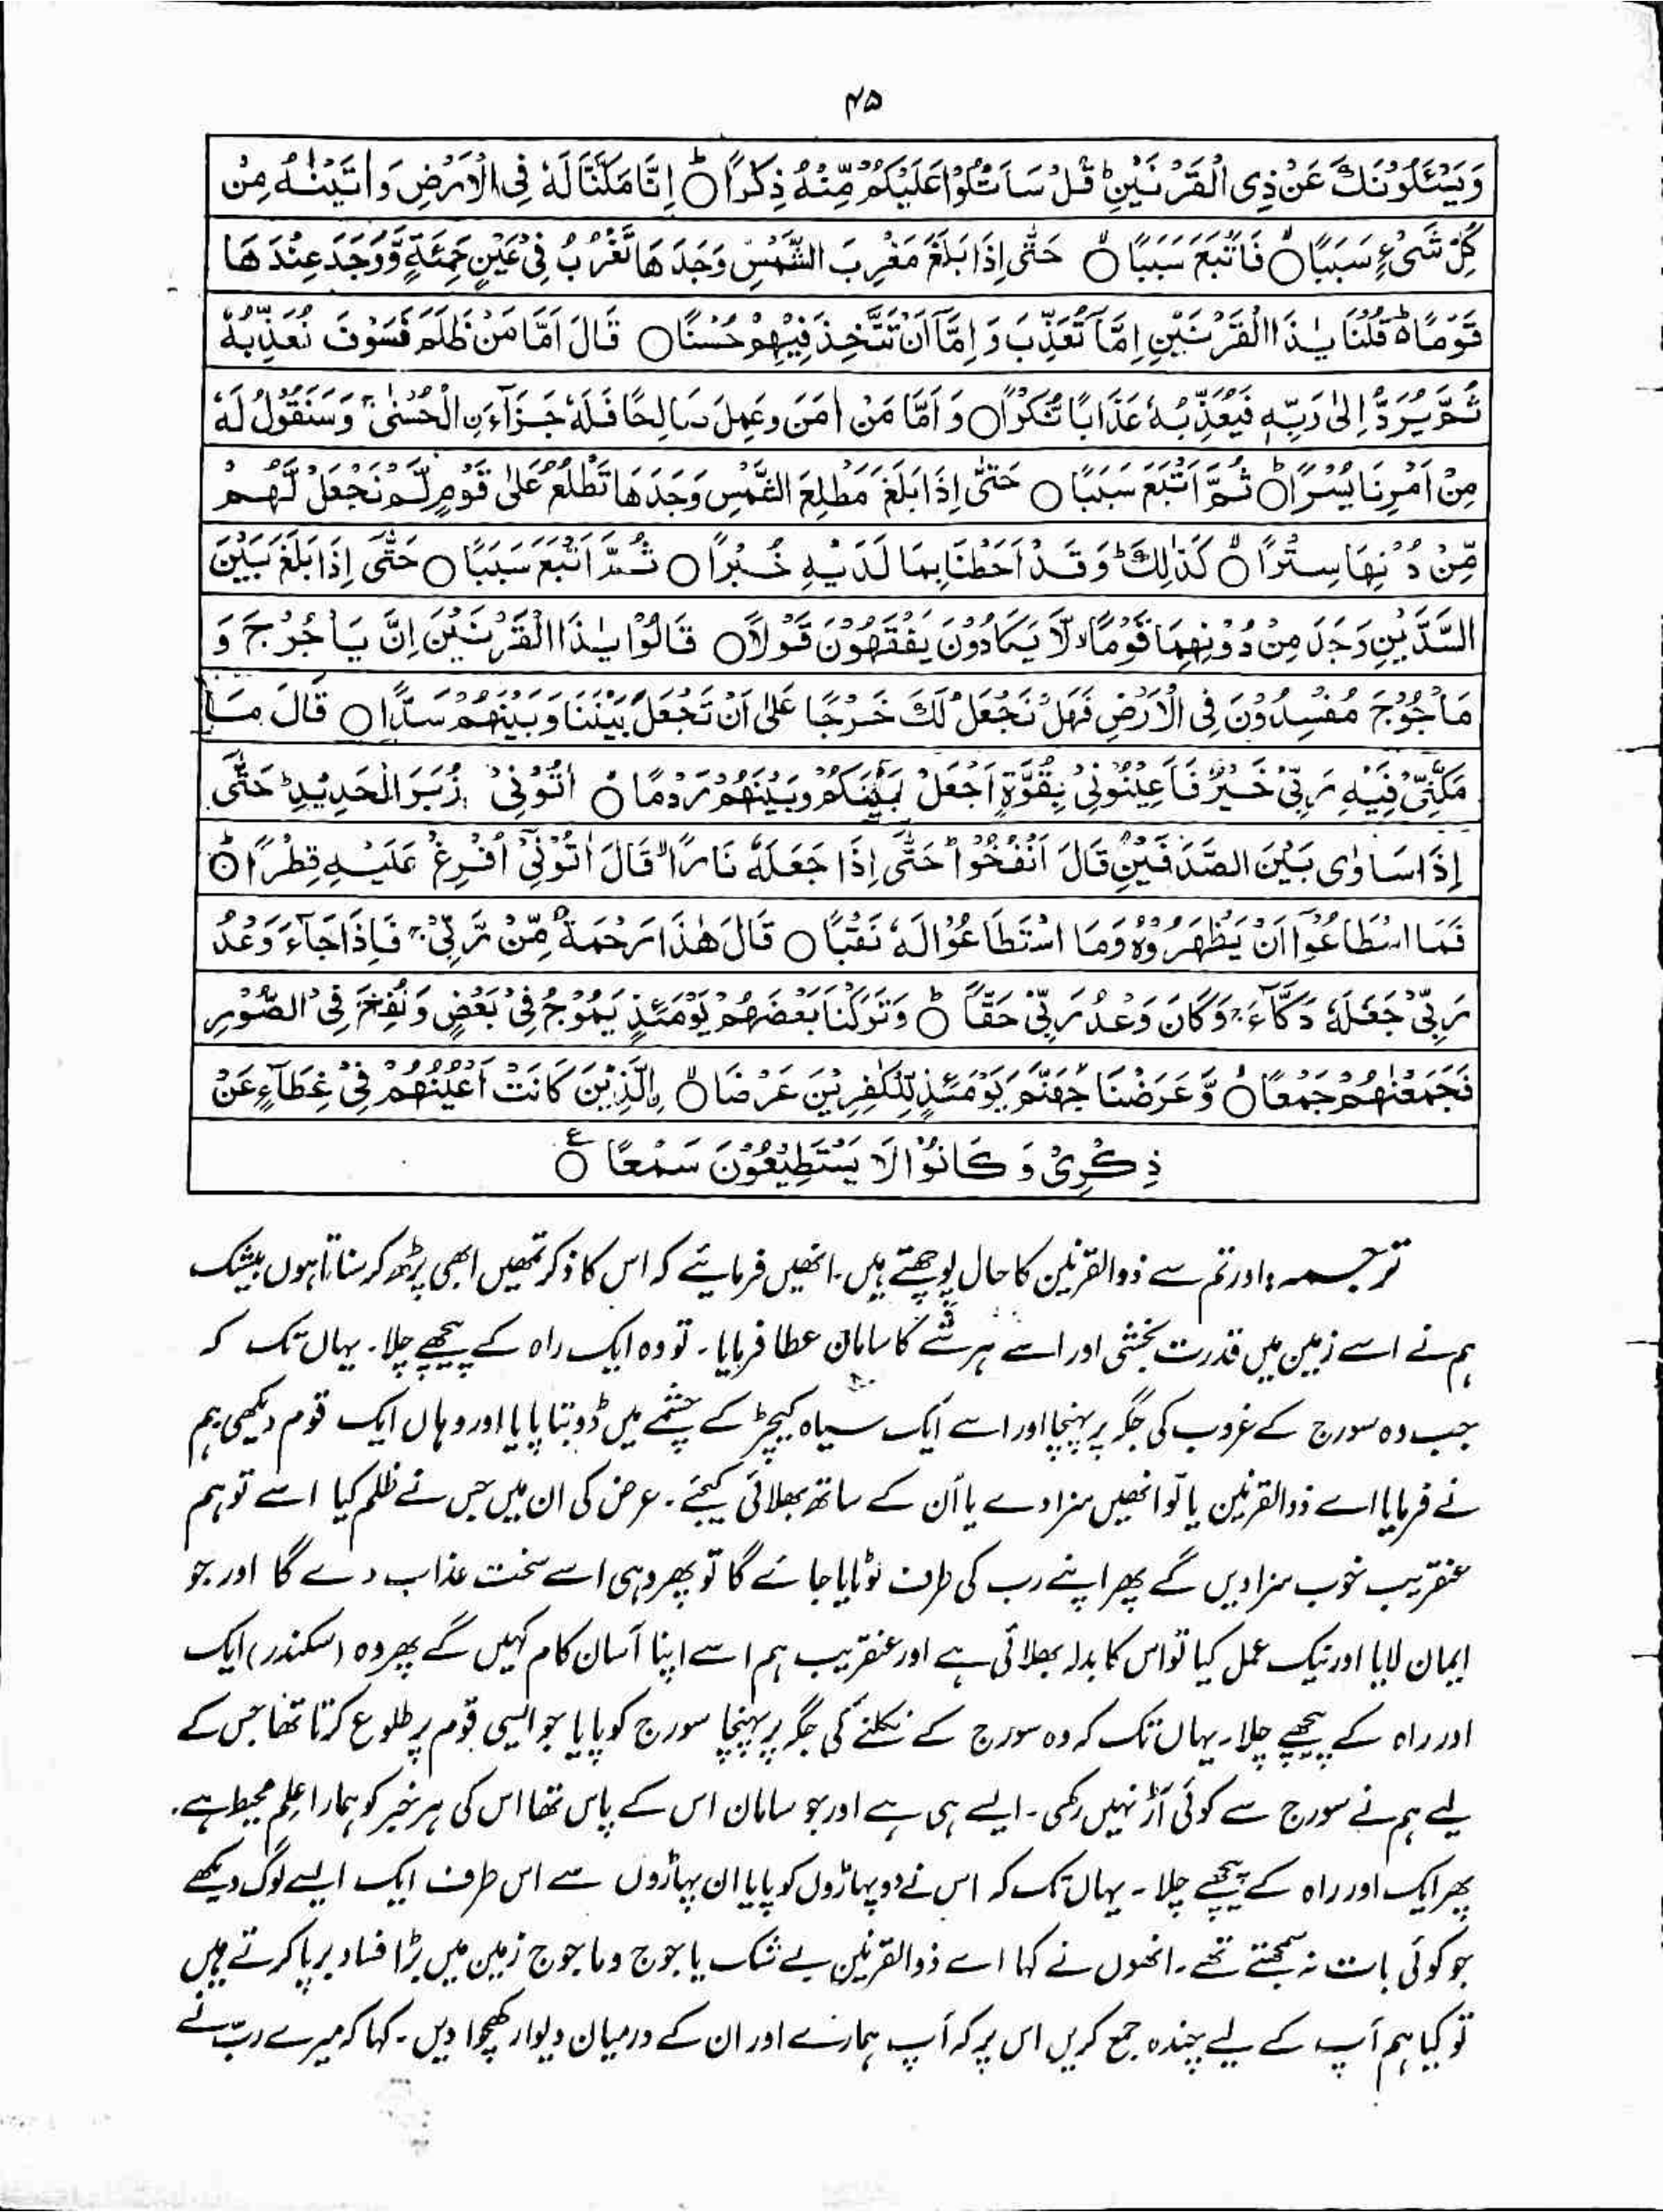 ۴۵
وَيَسْـَٔلُوْنَكَ عَنْ ذِى الْقَرْنَيْنِ ؕ قُلْ سَاَتْلُوْا عَلَيْكُمْ مِّنْهُ ذِكْرًا ○ؕ اِنَّا مَكَّنَّا لَهٗ فِى الْاَرْضِ وَاٰتَيْنٰهُ مِنْ
كُلِّ شَىْءٍ سَبَبًا ○ۙ فَاَتْبَعَ سَبَبًا ○ۙ حَتّٰى اِذَا بَلَغَ مَغْرِبَ الشَّمْسِ وَجَدَهَا تَغْرُبُ فِىْ عَيْنٍ حَمِئَةٍ وَّوَجَدَ عِنْدَهَا
قَوْمًا ؕ قُلْنَا يٰذَا الْقَرْنَيْنِ اِمَّآ تُعَذِّبَ وَاِمَّآ اَنْ تَتَّخِذَ فِيْهِمْ حُسْنًا ○ قَالَ اَمَّا مَنْ ظَلَمَ فَسَوْفَ نُعَذِّبُهٗ
ثُمَّ يُرَدُّ اِلٰى رَبِّهٖ فَيُعَذِّبُهٗ عَذَابًا نُّكْرًا ○ وَاَمَّا مَنْ اٰمَنَ وَعَمِلَ صَالِحًا فَلَهٗ جَزَآءَنِ الْحُسْنٰى ۚ وَسَنَقُوْلُ لَهٗ
مِنْ اَمْرِنَا يُسْرًا ○ؕ ثُمَّ اَتْبَعَ سَبَبًا ○ حَتّٰى اِذَا بَلَغَ مَطْلِعَ الشَّمْسِ وَجَدَهَا تَطْلُعُ عَلٰى قَوْمٍ لَّمْ نَجْعَلْ لَّهُمْ
مِّنْ دُوْنِهَا سِتْرًا ○ۙ كَذٰلِكَ ؕ وَقَدْ اَحَطْنَا بِمَا لَدَيْهِ خُبْرًا ○ ثُمَّ اَتْبَعَ سَبَبًا ○ حَتّٰى اِذَا بَلَغَ بَيْنَ
السَّدَّيْنِ وَجَدَ مِنْ دُوْنِهِمَا قَوْمًا ۙ لَّا يَكَادُوْنَ يَفْقَهُوْنَ قَوْلًا ○ قَالُوْا يٰذَا الْقَرْنَيْنِ اِنَّ يَاْجُوْجَ وَ
مَاْجُوْجَ مُفْسِدُوْنَ فِى الْاَرْضِ فَهَلْ نَجْعَلُ لَكَ خَرْجًا عَلٰٓى اَنْ تَجْعَلَ بَيْنَنَا وَبَيْنَهُمْ سَدًّا ○ قَالَ مَا
مَكَّنِّىْ فِيْهِ رَبِّىْ خَيْرٌ فَاَعِيْنُوْنِىْ بِقُوَّةٍ اَجْعَلْ بَيْنَكُمْ وَبَيْنَهُمْ رَدْمًا ○ۙ اٰتُوْنِىْ زُبَرَ الْحَدِيْدِ ؕ حَتّٰى
اِذَا سَاوٰى بَيْنَ الصَّدَفَيْنِ قَالَ انْفُخُوْا ؕ حَتّٰى اِذَا جَعَلَهٗ نَارًا ۙ قَالَ اٰتُوْنِىْٓ اُفْرِغْ عَلَيْهِ قِطْرًا ○ؕ
فَمَا اسْطَاعُوْٓا اَنْ يَّظْهَرُوْهُ وَمَا اسْتَطَاعُوْا لَهٗ نَقْبًا ○ قَالَ هٰذَا رَحْمَةٌ مِّنْ رَّبِّىْ ۚ فَاِذَا جَآءَ وَعْدُ
رَبِّىْ جَعَلَهٗ دَكَّآءَ ۚ وَكَانَ وَعْدُ رَبِّىْ حَقًّا ○ؕ وَتَرَكْنَا بَعْضَهُمْ يَوْمَئِذٍ يَّمُوْجُ فِىْ بَعْضٍ وَّنُفِخَ فِى الصُّوْرِ
فَجَمَعْنٰهُمْ جَمْعًا ○ۙ وَّعَرَضْنَا جَهَنَّمَ يَوْمَئِذٍ لِّلْكٰفِرِيْنَ عَرْضَا ○ۙ ۨالَّذِيْنَ كَانَتْ اَعْيُنُهُمْ فِىْ غِطَآءٍ عَنْ
ذِكْرِىْ وَكَانُوْا لَا يَسْتَطِيْعُوْنَ سَمْعًا ○ۧ
ترجمہ: اور تم سے ذوالقرنین کا حال پوچھتے ہیں۔ انھیں فرمایئے کہ اس کا ذکر تمھیں ابھی پڑھ کر سناتا ہوں بیشک
ہم نے اسے زمین میں قدرت بخشی اور اسے ہر شے کا سامان عطا فرمایا۔ تو وہ ایک راہ کے پیچھے چلا۔ یہاں تک کہ
جب وہ سورج کے غروب کی جگہ پر پہنچا اور اسے ایک سیاہ کیچڑ کے چشمے میں ڈوبتا پایا اور وہاں ایک قوم دیکھی ہم
نے فرمایا اے ذوالقرنین یا تو انھیں سزا دے یا اُن کے ساتھ بھلائی کیجئے۔ عرض کی ان میں جس نے ظلم کیا اسے تو ہم
عنقریب خوب سزا دیں گے پھر اپنے رب کی طرف لوٹایا جائے گا تو پھر وہی اسے سخت عذاب دے گا اور جو
ایمان لایا اور نیک عمل کیا تو اس کا بدلہ بھلائی ہے اور عنقریب ہم اسے اپنا آسان کام کہیں گے پھر وہ (سکندر) ایک
اور راہ کے پیچھے چلا۔ یہاں تک کہ وہ سورج کے نکلنے کی جگہ پر پہنچا سورج کو پایا جو ایسی قوم پر طلوع کرتا تھا جس کے
لیے ہم نے سورج سے کوئی آڑ نہیں رکھی۔ ایسے ہی ہے اور جو سامان اس کے پاس تھا اس کی ہر خبر کو ہمارا علم محیط ہے۔
پھر ایک اور راہ کے پیچھے چلا۔ یہاں تک کہ اس نے دو پہاڑوں کو پایا ان پہاڑوں سے اس طرف ایک ایسے لوگ دیکھے
جو کوئی بات نہ سمجھتے تھے۔ انھوں نے کہا اے ذوالقرنین بے شک یاجوج و ماجوج زمین میں بڑا فساد برپا کرتے ہیں
تو کیا ہم آپ کے لیے چندہ جمع کریں اس پر کہ آپ ہمارے اور ان کے درمیان دیوار کھچوا دیں۔ کہا کہ میرے ربّ نے